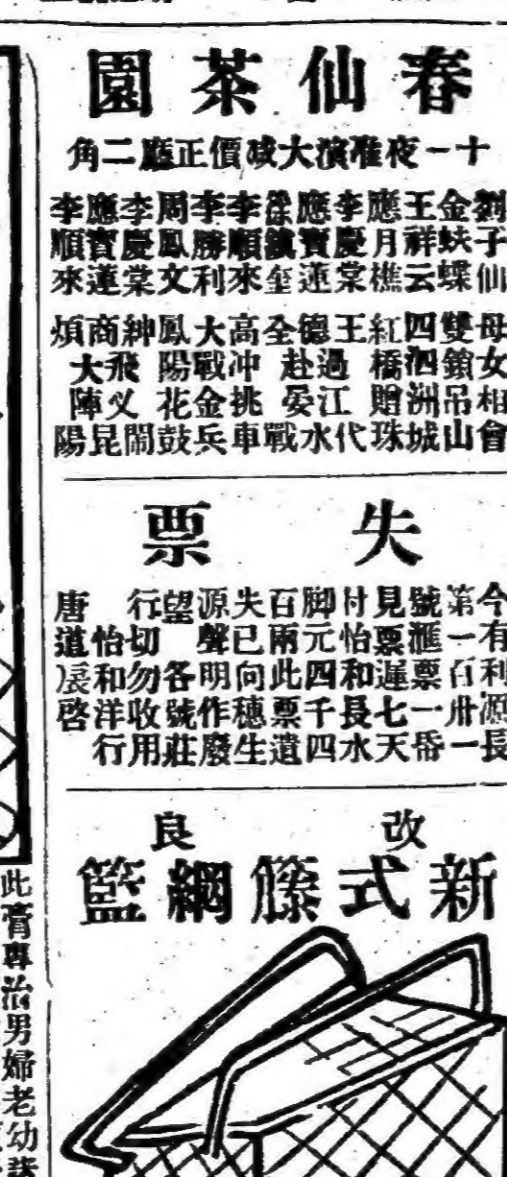 春仙茶園
十一夜准演大減價正廳二角
劉子仙
金蛺蝶
王祥云
應月樵
李慶棠
應寶蓮
徐鎮奎
李順來
李勝利
周鳳文
李慶棠
應寶蓮
李順來
母女相會
雙鎖吊山
四泗洲城
紅橋贈珠
王代
德過江水
全赴宴戰
高冲挑車
大戰金兵
鳳陽花鼓
紳鬧
商飛乂昆
煩大陣陽
失票
今有利源長
第一百卅一
號匯票一昏
見票遲七天
付怡和長水
脚元四千四
百兩此票遺
失已向穗生
源聲明作廢
望各號莊
行切勿收用
怡和洋行
唐道扆啓
改良
新式籐網籃
此膏專治男婦老幼